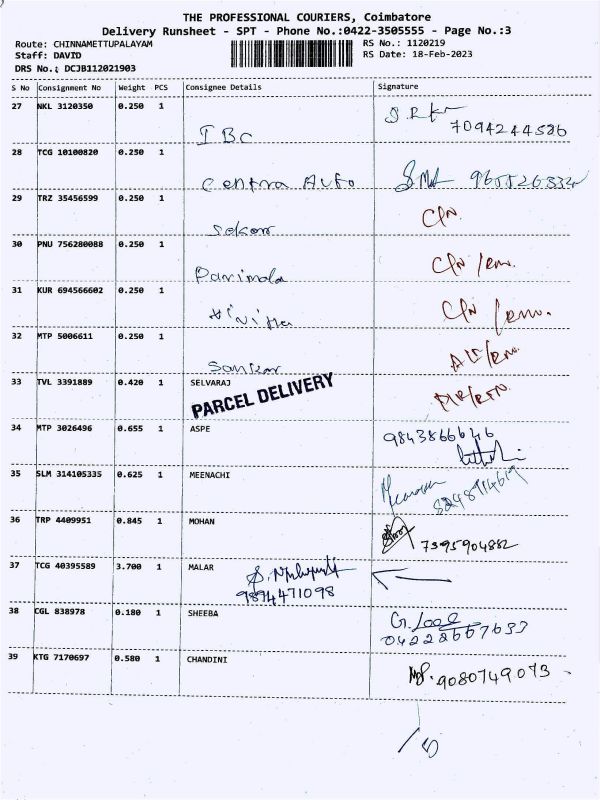 THE PROFESSIONAL COURIERS, Coimbatore
Delivery Runsheet - SPT - Phone No.:0422-3505555 - Page No.:3
Route: CHINNAMETTUPALAYAM RS No.: 1120219
Staff: DAVID RS Date: 18-Feb-2023
DRS No.: DCJB112021903
S No Consignment No Weight PCS Consignee Details Signature
27 NKL 3120350 0.250 1
7094244586
IBC
28 TCG 10100820 0.250 1
Centra Auto
29 TRZ 35456599 0.250 1
Sekar
30 PNU 756280088 0.250 1
Parimala
31 KUR 694566602 0.250 1
32 MTP 5006611 0.250 1
Sankar
33 TVL 3391889 0.420 1 SELVARAJ
PARCEL DELIVERY
34 MTP 3026496 0.655 1 ASPE 9843866646
35 SLM 314105335 0.625 1 MEENACHI
36 TRP 4409951 0.845 1 MOHAN
7395904882
37 TCG 40395589 3.700 1 MALAR
9894471098
38 CGL 838978 0.180 1 SHEEBA
04228667633
39 KTG 7170697 0.580 1 CHANDINI
9080749073